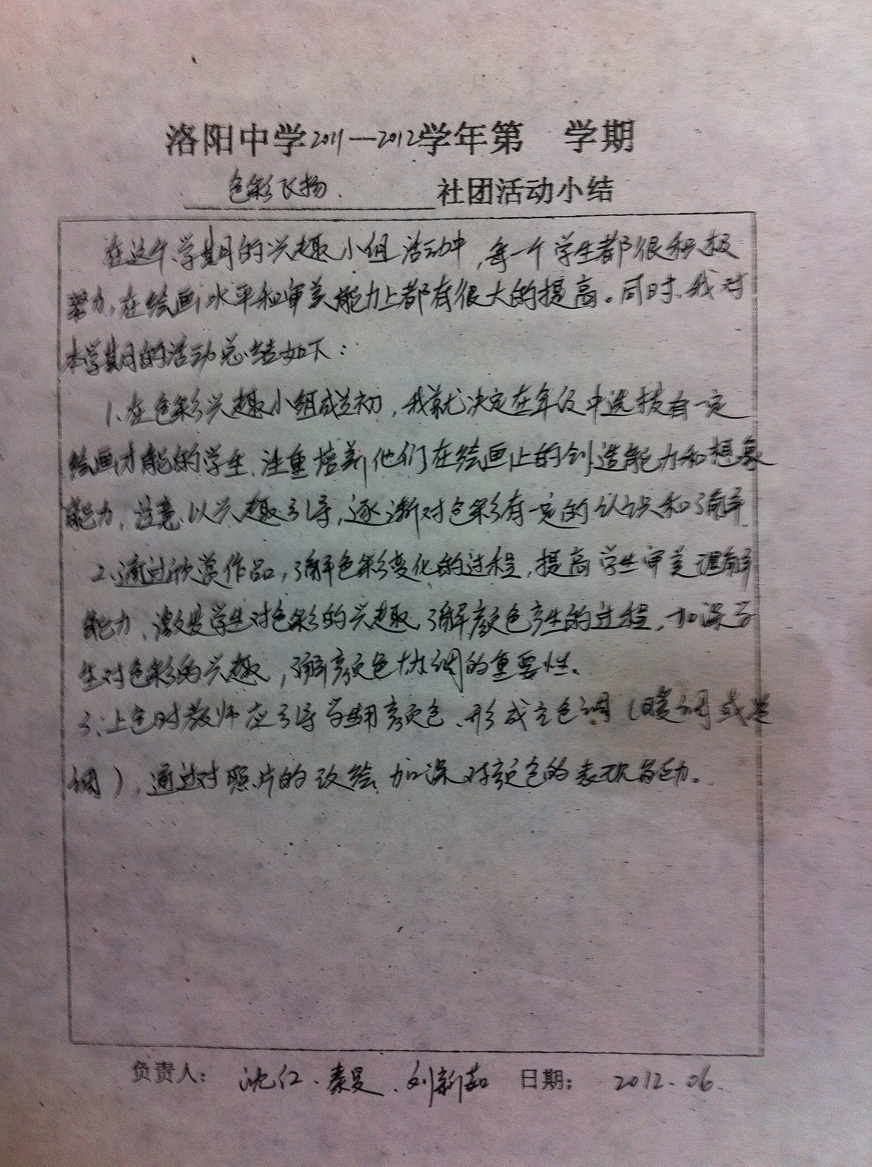 洛阳中学2011—2012学年第 学期
色彩飞扬. 社团活动小结
在这个学期的兴趣小组活动中,每一个学生都很积极
努力,在绘画水平和审美能力上都有很大的提高。同时,我对
本学期的活动总结如下:
1、在色彩兴趣小组成立初,我就决定在年级中选拔有一定
绘画才能的学生,注重培养他们在绘画上的创造能力和想象
能力,注意以兴趣引导,逐渐对色彩有一定的认识和了解
2、通过欣赏作品,了解色彩变化的过程,提高学生审美理解
能力,激发学生对色彩的兴趣,了解颜色产生的过程,加深学
生对色彩的兴趣,了解颜色协调的重要性、
3、上色时教师应引导 用颜色、形成主色调(暖调或是
调),通过对照片的改绘,加深对颜色的表现能力。
负责人: 沈红、秦旻、刘新茹 日期: 2012.06.